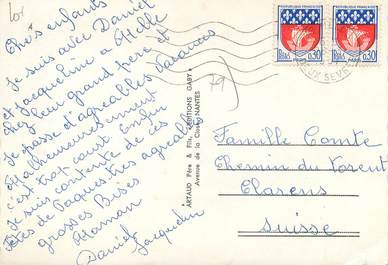 Chers enfants
Je suis avec Daniel
et Jacqueline à Melle
chez leur grand père et
Je passe d'agréables vacances
Malheureusement
c'est trop court. Enfin
Je suis contente de ces
fêtes de Pâques très agréable
grosses Bises
Maman
Daniel Jacqueline
ARTAUD Père & Fils, EDITIONS GABY
Avenue de la Close, NANTES
79
REPUBLIQUE FRANÇAISE
REPUBLIQUE FRANÇAISE
PARIS 0,30
PARIS 0,30
Famille Comte
Chemin du Torrent
Clarens
Suisse